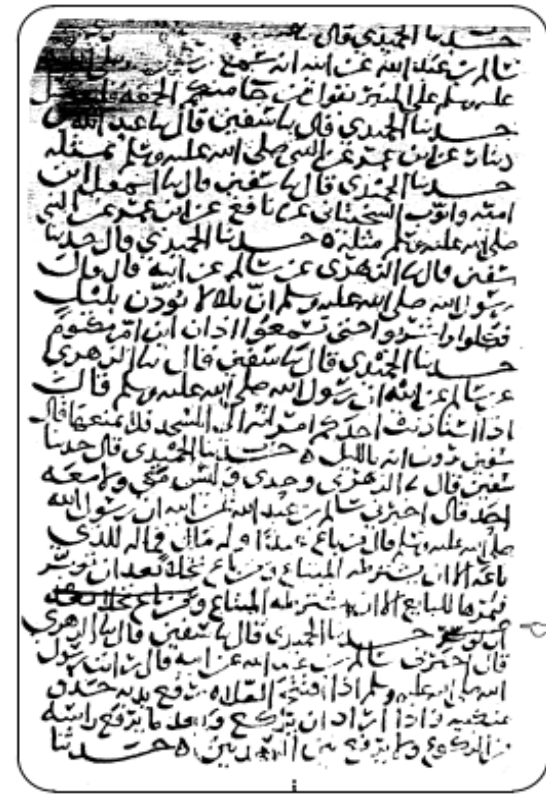 حدثنا الحميدي قال
سالم بن عبد الله عن ابيه انه سمع رسول الله صلى الله
عليه وسلم على المنبر يقول من جا منكم الجمعه فليغتسل
حدثنا الحميدي قال ثنا سفين قال ثنا عبد الله بن
دينار عن ابن عمر عن النبي صلى الله عليه وسلم بمثله
حدثنا الحميدي قال ثنا سفين قال ثنا اسمعيل بن
اميه وايوب السختياني عن نافع عن ابن عمر عن النبي
صلى الله عليه وسلم مثله ه حدثنا الحميدي قال حدثنا
سفين قال ثنا الزهري عن سالم عن ابيه قال قال
رسول الله صلى الله عليه وسلم ان بلالا يوذن بليل
فكلوا واشربوا حتى تسمعوا اذان ابن ام مكتوم
حدثنا الحميدي قال ثنا سفين قال ثنا الزهري
عن سالم عن ابيه ان رسول الله صلى الله عليه وسلم قال
اذا استاذنت احدكم امراته الى المسجد فلا يمنعها قال
سفين يرون انه بالليل ه حدثنا الحميدي قال حدثنا
سفين قال ثنا الزهري وحدي وليس معي ولا معه
احد قال اخبرني سالم بن عبد الله عن ابيه ان رسول الله
صلى الله عليه وسلم قال من باع عبدا وله مال فماله للذي
باعه الا ان يشترطه المبتاع ومن باع نخلا بعد ان توبر
فثمرها للبايع الا ان يشترطه المبتاع ومن باع نخلا بعد
ان توبر حدثنا الحميدي قال ثنا سفين قال ثنا الزهري
قال اخبرني سالم بن عبد الله عن ابيه قال رايت رسول
الله صلى الله عليه وسلم اذا افتتح الصلاه رفع يديه حذو
منكبيه واذا اراد ان يركع وبعد ما يرفع راسه
من الركوع ولا يرفع بين السجدتين ه حدثنا